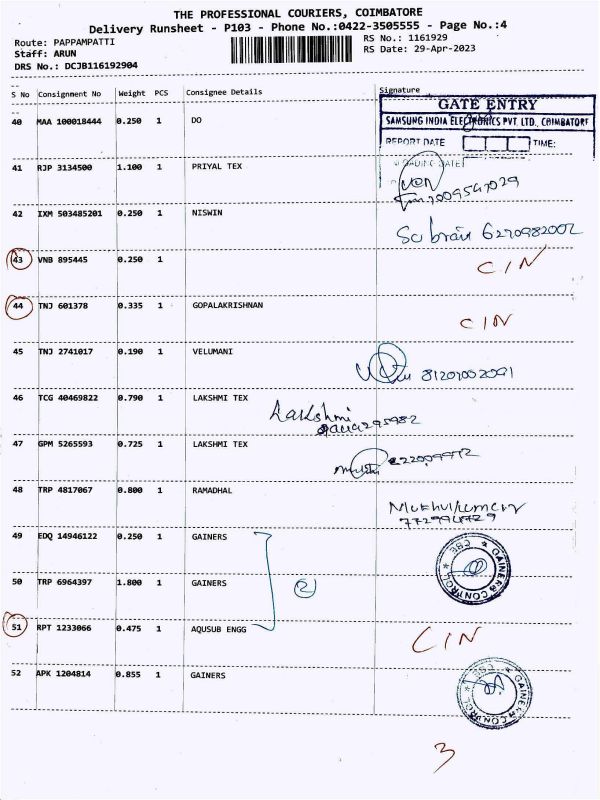 THE PROFESSIONAL COURIERS, COIMBATORE
Delivery Runsheet - P103 - Phone No.:0422-3505555 - Page No.:4
Route: PAPPAMPATTI RS No.: 1161929
Staff: ARUN RS Date: 29-Apr-2023
DRS No.: DCJB116192904
S No Consignment No Weight PCS Consignee Details Signature
GATE ENTRY
40 MAA 100018444 0.250 1 DO SAMSUNG INDIA ELECTRONICS PVT. LTD., COIMBATORE
REPORT DATE TIME:
41 RJP 3134500 1.100 1 PRIYAL TEX
42 IXM 503485201 0.250 1 NISWIN
6270982002
43 VNB 895445 0.250 1 CIN
44 TNJ 601378 0.335 1 GOPALAKRISHNAN CIN
45 TNJ 2741017 0.190 1 VELUMANI
46 TCG 40469822 0.790 1 LAKSHMI TEX Lakshmi
47 GPM 5265593 0.725 1 LAKSHMI TEX
48 TRP 4817067 0.800 1 RAMADHAL
49 EDQ 14946122 0.250 1 GAINERS
50 TRP 6964397 1.800 1 GAINERS 2
GAINERS CONTROL * 382 *
51 RPT 1233066 0.475 1 AQUSUB ENGG CIN
52 APK 1204814 0.855 1 GAINERS
GAINERS CONTROL * 382 *
3